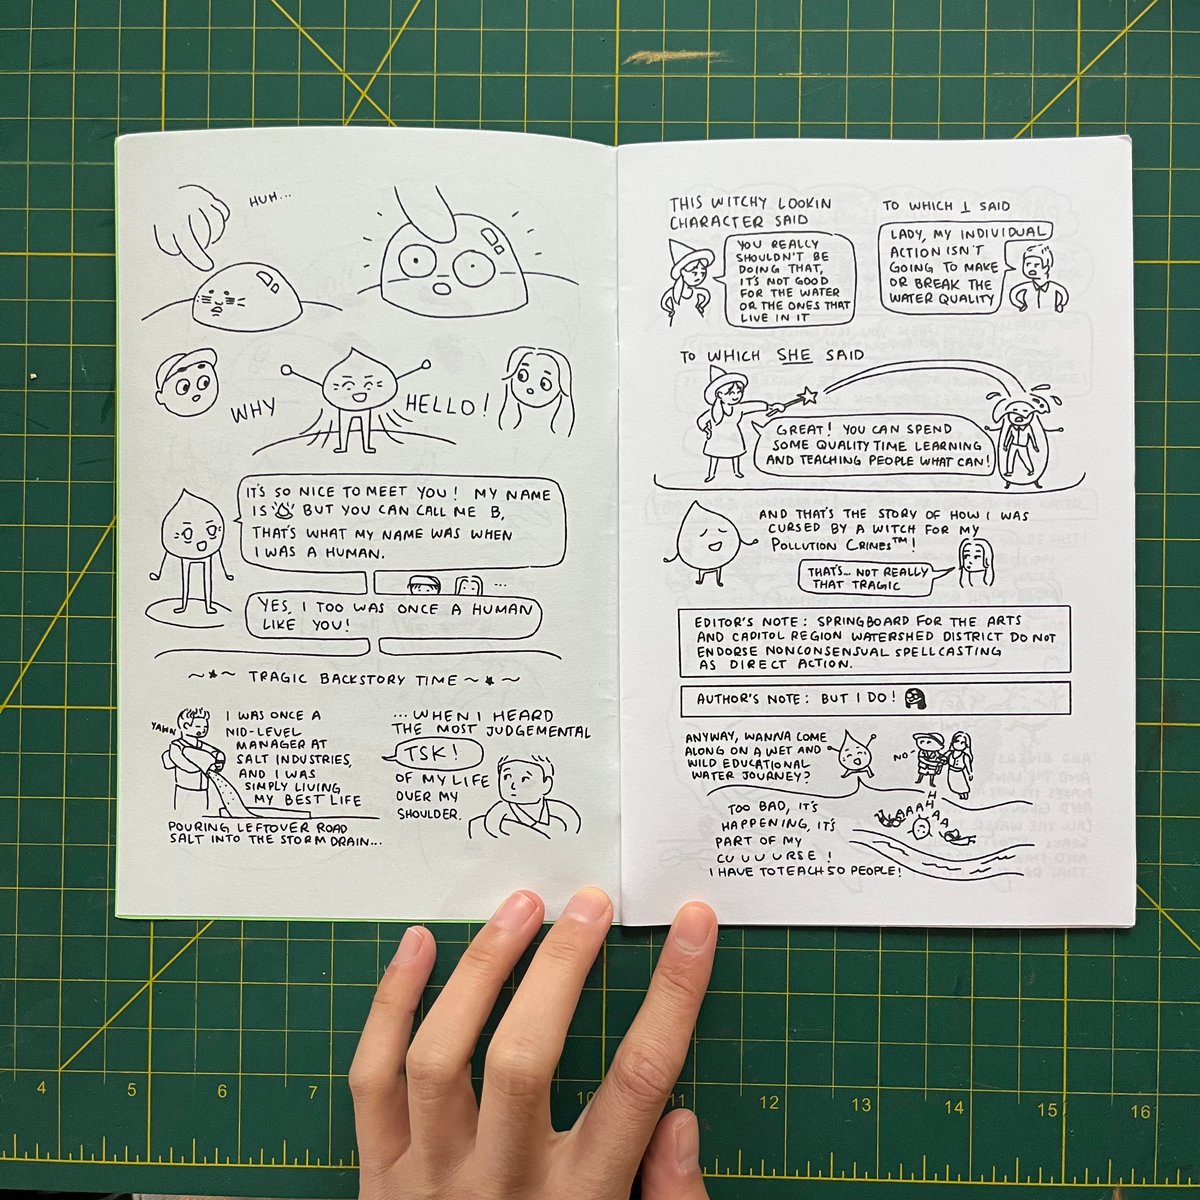 HUH...
WHY
HELLO!
IT'S SO NICE TO MEET YOU! MY NAME
IS BUT YOU CAN CALL ME B,
THAT'S WHAT MY NAME WAS WHEN
I WAS A HUMAN.
...
YES, I TOO WAS ONCE A HUMAN
LIKE YOU!
~★~ TRAGIC BACKSTORY TIME ~★~
YAWN
I WAS ONCE A
MID-LEVEL
MANAGER AT
SALT INDUSTRIES,
AND I WAS
SIMPLY LIVING
MY BEST LIFE
POURING LEFTOVER ROAD
SALT INTO THE STORM DRAIN...
...WHEN I HEARD
THE MOST JUDGEMENTAL
TSK!
OF MY LIFE
OVER MY
SHOULDER.
THIS WITCHY LOOKIN
CHARACTER SAID
YOU REALLY
SHOULDN'T BE
DOING THAT,
IT'S NOT GOOD
FOR THE WATER
OR THE ONES THAT
LIVE IN IT
TO WHICH I SAID
LADY, MY INDIVIDUAL
ACTION ISN'T
GOING TO MAKE
OR BREAK THE
WATER QUALITY
TO WHICH SHE SAID
GREAT! YOU CAN SPEND
SOME QUALITY TIME LEARNING
AND TEACHING PEOPLE WHAT CAN!
AND THAT'S THE STORY OF HOW I WAS
CURSED BY A WITCH FOR MY
POLLUTION CRIMES™!
THAT'S... NOT REALLY
THAT TRAGIC
EDITOR'S NOTE: SPRINGBOARD FOR THE ARTS
AND CAPITOL REGION WATERSHED DISTRICT DO NOT
ENDORSE NONCONSENSUAL SPELLCASTING
AS DIRECT ACTION.
AUTHOR'S NOTE: BUT I DO!
ANYWAY, WANNA COME
ALONG ON A WET AND
WILD EDUCATIONAL
WATER JOURNEY?
NO
TOO BAD, IT'S
HAPPENING, IT'S
PART OF MY
CUUUURSE!
I HAVE TO TEACH SO PEOPLE!
AAAAHHAA
4 5 6 7 10 11 12 13 14 15 16